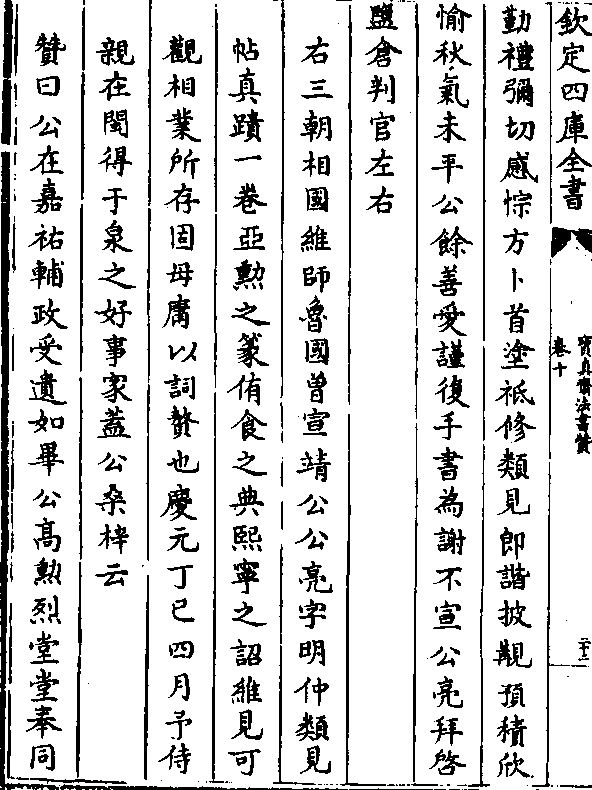 欽定四庫全書
寳真齋法書贊
卷十
二十二
勤禮彌切感悰方卜首塗祗修類見即諧披覯預積欣
愉秋氣未平公餘善愛謹復手書為謝不宣公亮拜啓
鹽倉判官左右
右三朝相國維師魯國曾宣靖公公亮字明仲類見
帖真蹟一卷亞勲之篆侑食之典熙寧之詔維見可
觀相業所存固毋庸以詞贅也慶元丁巳四月予侍
親在閩得于泉之好事家蓋公桑梓云
贊曰公在嘉祐輔政受遺如畢公高勲烈堂堂奉同